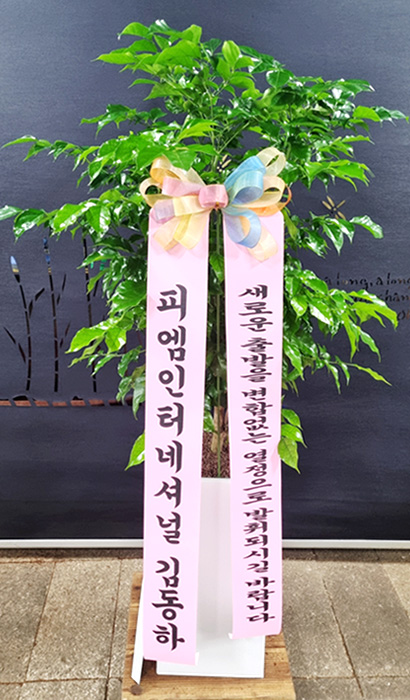 피엠인터네셔널 김동하
새로운 출발을 변함없는 열정으로 발휘되시길 바랍니다